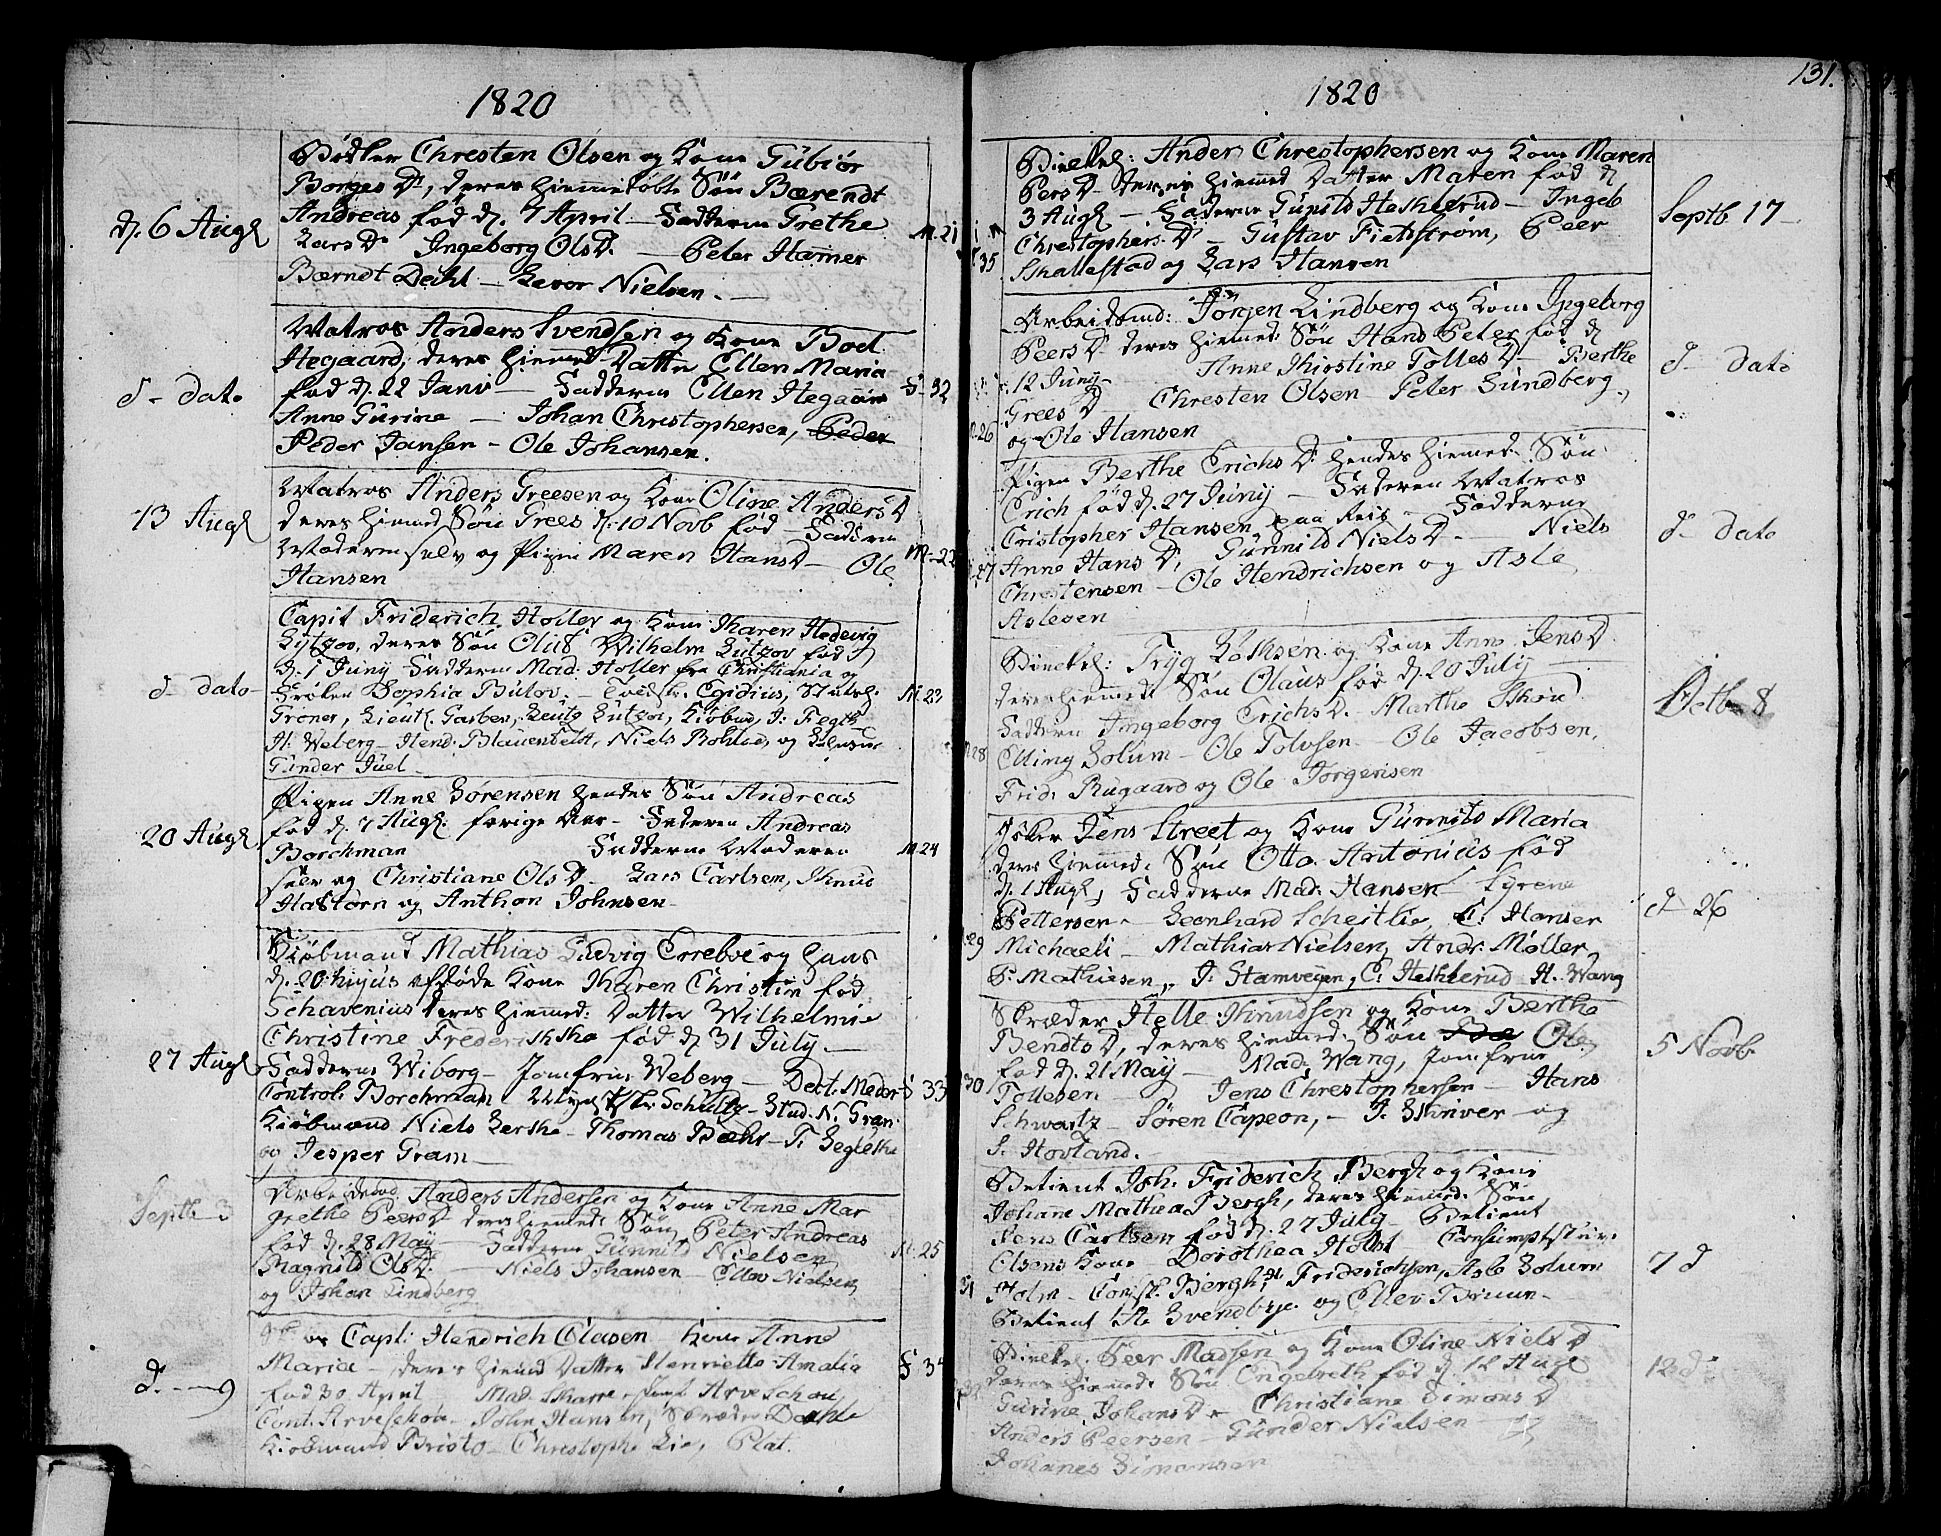 1820
d. 6 Augl
Bødker Chresten Olsen og Kone Gubiør
Borges D., deres hiemmedøbte Søn Bærendt
Andreas fød d. 7 April Fadderne Grethe
Lars D. Ingeborg Ols D. — Peter Hamer
Bærndt Dehl — Levor Nielsen. —
M. 21
d — dato
Matros Anders Svendsen og Kone Boel
Hegaard, deres hiemmed. Datter Ellen Maria
fød d. 22 Janv — Fadderne Ellen Hegaard
Anne Gurine — Johan Christophersen, Peder
Peder Jansen — Ole Johansen.
F. 32
13 Augl
Matros Anders Greesen og Kone Oline Anders D
deres hiemmed Søn Grees d. 10 Novb fød — Fadderne
Moderen selv og Pigen Maren Hans D — Ole
Hansen
M. 22
d — dato —
Capit Friderich Holler og Kone Karen Hedevig
Lützov, deres Søn Olus Wilhelm Lützov fød
d. 1 Juny Fadderne Mad. Holler fra Christiania og
Frøken Sophia Bülov. — Egidius,
Groner, Lieut. Garben, Lützov, Kiøbmd, J. Fegth
H. Weberg — Hend. Blauenfeldt, Niels Bohlad, og
Gunder Juel —
M. 23
20 Augl
Pigen Anne Sørensen hendes Søn Andreas
fød d. 7 Augl. forrige Aar — Faderen Andreas
Borchman Fadderne Moderen
selv og Christiane Ols D. Lars Carlsen, Knud
Hastorn og Anthon Johnsen —
M. 24
27 Augl
Kiøbmand Mathias Ludvig Errebøe og hans
d. 20 hujus afdøde Kone Karen Christin fød
Schavenius deres hiemmed: Datter Wilhelmie
Christine Frederikke fød d. 31 July —
Fadderne Wiborg — Jomfrue Weberg — Doct. Meder
Control. Borchman Schultz — Stud. N. Gran
Kiøbmand Niels Lerche — Thomas Bæhr — T.
og Jesper Gram —
F 33
Septb 3
Arbeidsmd Anders Andersen og Kone Anne Mar
grethe Peers D deres hiemmed: Søn Peter Andreas
fød d. 28 May — Fadderne Gunnild Nielsen
Magnild Ols D. — Niels Johansen — Ellev Nielsen
og Johan Lindberg
M. 25
d. — 9
Capl. Hendrich Clasen Kone Anne
Maria — deres hiemmed Datter Henriette Amalia
fød 30 April Mad. Skarre — Jomf Arveschou
Cont. Arveschou — John Hansen, Skræder Dahle
Kiøbmand Bristo — Christophe Lie, Plat.
F 34
131.
1820
Bierkel: Anders Chrestophersen og Kone Maren
Pers D deres hiemmed Datter Maren fød d
3 Augl — Fadderne Gunild Heskkerud — Ingeb
Chrestophers D — Gustav Fietstrøm, Peer
Skallestad og Lars Hansen
35
Septb 17
Arbeidsmd: Jørgen Lindberg og Kone Ingeborg
Peers D deres hiemmed Søn Hans Peter fød d
12 Juny — Anne Kirstine Tolles D — Berthe
Grees D — Chresten Olsen Peter Lundberg,
og Ole Hansen
26
d — dato
Pigen Berthe Erichs D hendes hiemmed: Søn
Erich fød d. 27 Juny — Faderen Matros
Cristopher Hansen paa Reis — Fadderne
Anne Hans D, Gunnild Niels D — Niels
Chrestensen — Ole Hendrichsen og Asle
Aslesen
27
d — dato
Bierkel: Tryg Kolksen og Kone Anne Jens D
deres hiemmed: Søn Olaus fød d. 20 July —
Fadderne Ingeborg Erichs D — Marthe Skou
Elling Solum — Ole Tolvsen — Ole Jacobsen,
Frid: Rugaard og Ole Jørgensen
28
Octb 8
Jens Street og Kone Gunnild Maria
deres hiemmed: Søn Otto Antonius fød
d. 1 Augl, Fadderne Mad: Hansen — Syrene
Pettersen — Leonhard Scheitlie, C. Hansen
Michaeli — Mathias Nielsen, Andr. Møller,
P. Mathiesen, J. Stamveyen, C. Heskkerud H. Wang
29
d — 26
Skræder Helle Knudsen og Kone Berthe
Bendts D, deres hiemmed: Søn Ole
fød d. 21 May — Mad: Wang, Jomfrue
Tollesen — Jens Chrestophersen — Hans
Schwartz — Søren Capeon, — J. Skriver — og
S. Hovland. —
30
5 Novb
Betient Joh. Friderich Bergh og Kone
Johanne Mathea Bergh, deres hiemmed: Søn
Jens Carlsen fød d. 27 July — Betient
Olsens Kone Dorothea Holst Consumpt
Holm — Bergh, Friderichsen, Asle Solum
Betient Svendbye og Ellev Bruun —
31
7 d
Bierkel: Peer Madsen og Kone Oline Niels D
deres hiemmed: Søn Engelbreth fød d. 12 Augl
Gurine Johans D — Christiane Simons D
Anders Peersen — Gunder Nielsen — og
Johanes Simonsen
12 d